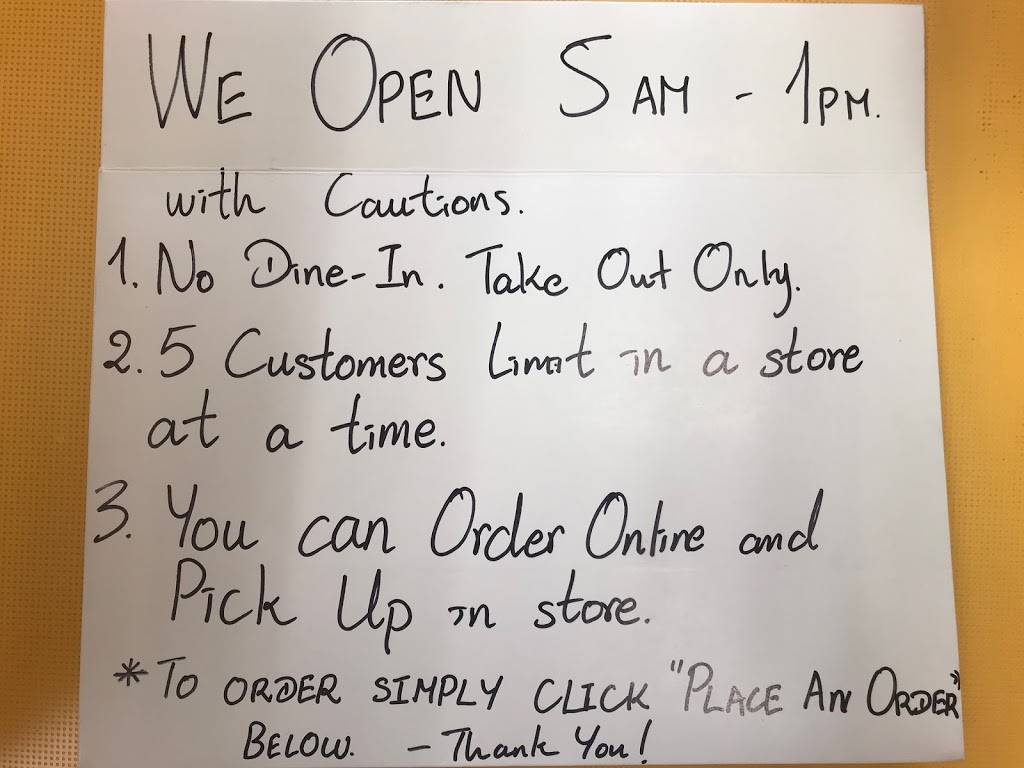 WE OPEN 5AM - 1PM.
with Cautions.
1. No Dine-In. Take Out Only.
2. 5 Customers Limit in a store
at a time.
3. You can Order Online and
Pick Up in store.
* TO ORDER SIMPLY CLICK "PLACE AN ORDER"
BELOW. - Thank You!